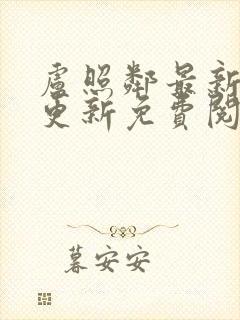 盧照鄰最新
更新免費閱
暮安安